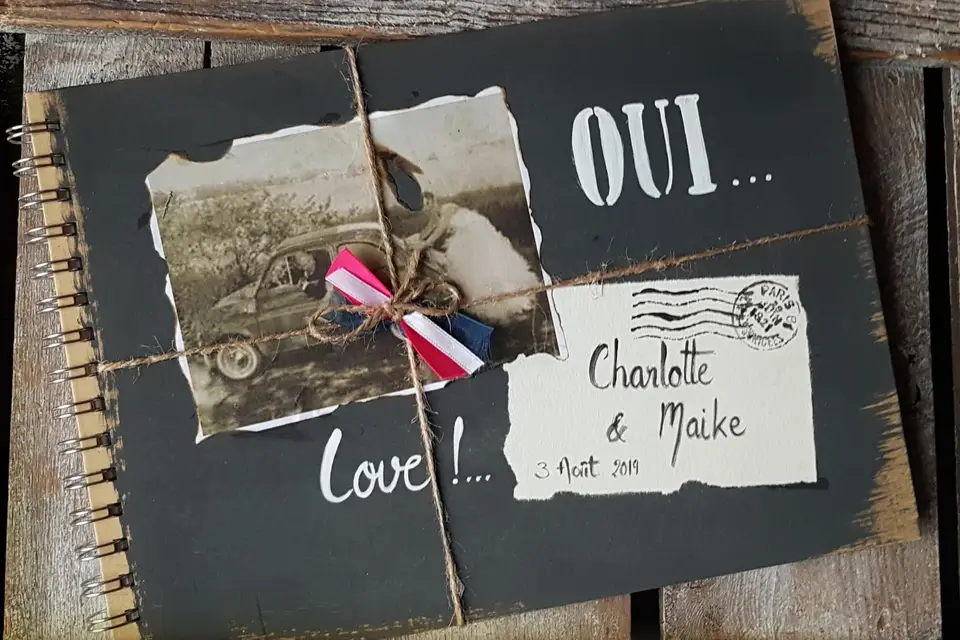 OUI...
PARIS
Charlotte
& Maike
3 Août 2019
Love !...